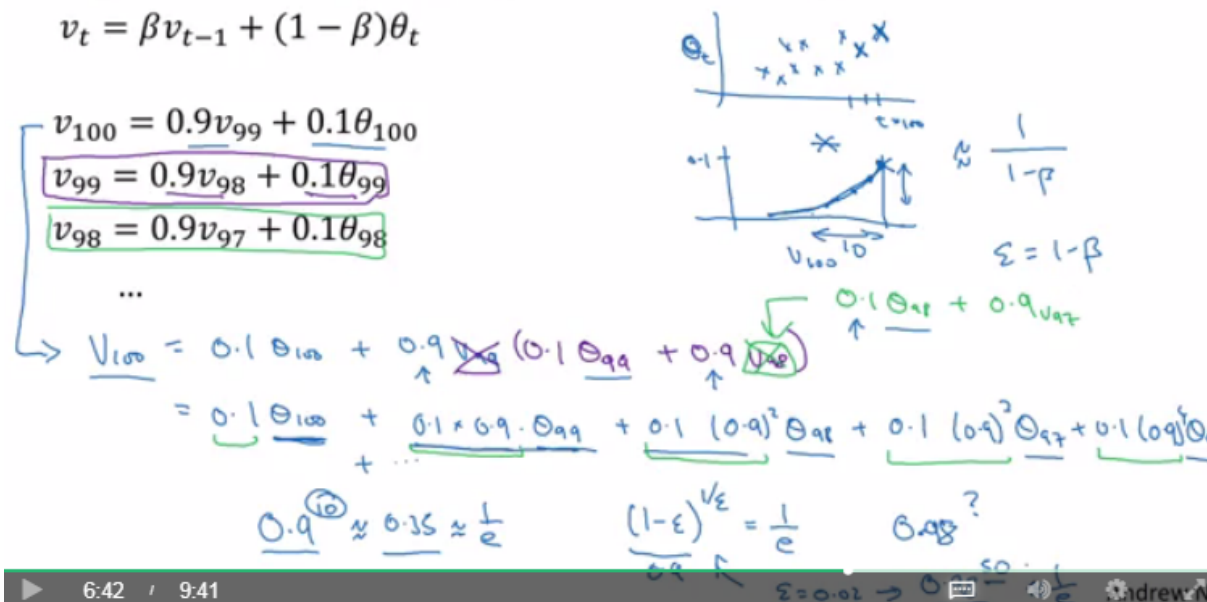 v_t = βv_{t−1} + (1 − β)θ_t
v_100 = 0.9v_99 + 0.1θ_100
v_99 = 0.9v_98 + 0.1θ_99
v_98 = 0.9v_97 + 0.1θ_98
...
θ_t
t=100
0.1
≈ 1/(1-β)
10
V_100
ε = 1-β
0.1 θ_98 + 0.9 v_97
V_100 = 0.1 θ_100 + 0.9 v_99 (0.1 θ_99 + 0.9 v_98)
= 0.1 θ_100 + 0.1 × 0.9 · θ_99 + 0.1 (0.9)² θ_98 + 0.1 (0.9)³ θ_97 + 0.1 (0.9)⁴ θ
+ ...
0.9^10 ≈ 0.35 ≈ 1/e
(1-ε)^{1/ε} = 1/e
0.98 ?
0.9
ε = 0.02 →
6:42 / 9:41